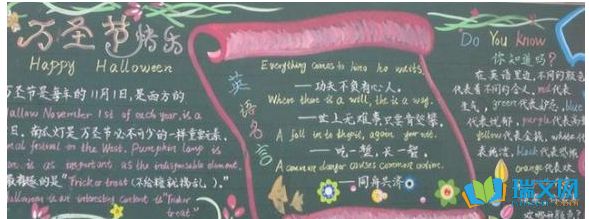 万圣节快乐
Happy Halloween
万圣节是每年的11月1日,是西方的
Hallow November 1st of each year, is a
日。南瓜灯是万圣节必不可少的一样重要素,
nal festival on the West. Pumpkin lamp is
as important as the indispensable element.
最有趣的是"Trick or treat(不给糖就捣乱)。"
Halloween is an interesting content is "Trick or
treat"
英语名言
Everything comes to him who waits.
——功夫不负有心人。
Where there is a will, there is a way.
——世上无难事只要肯登攀
A fall into the pit, a gain your wit.
——吃一堑,长一智。
A common danger causes common action.
——同舟共济
Do You Know
你知道吗?
在英语里边,不同的颜色
代表着不同的含义,red代表
生气,green代表妒忌,blue
代表忧郁,purple代表高贵
yellow代表金钱,white代
表纯洁,black代表恐怖
orange代表欢
瑞文网